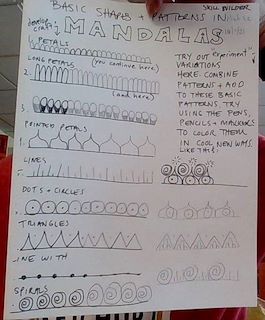 BASIC SHAPES + PATTERNS IN
SKILL BUILDER
develop
craft
MANDALAS
PETALS
1.
(you continue here)
LONG PETALS
2.
(and here)
3.
POINTED PETALS
LINES
DOTS + CIRCLES
TRIANGLES
LINE WITH
SPIRALS
TRY OUT "Experiment"
VARIATIONS
HERE. COMBINE
PATTERNS + ADD
TO THESE BASIC
PATTERNS. TRY
USING THE PENS,
PENCILS + MARKERS
TO COLOR THEM
IN COOL NEW WAYS.
LIKE THIS: